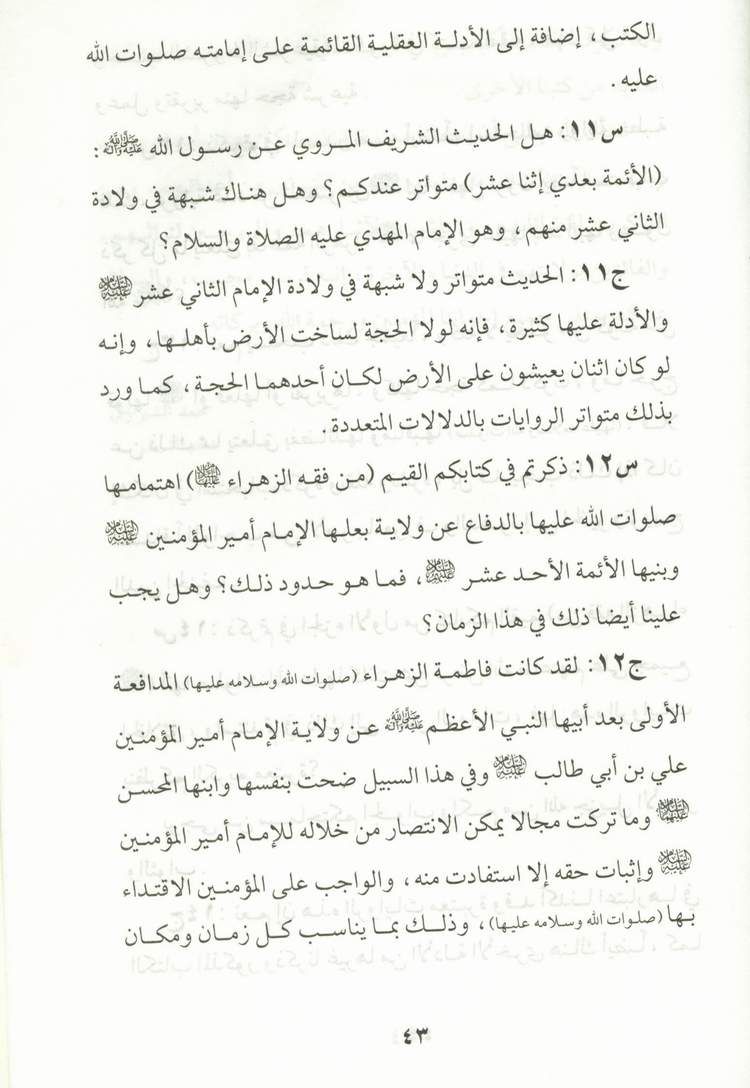 الكتب، إضافة إلى الأدلة العقلية القائمة على إمامته صلوات الله
عليه.
س١١: هل الحديث الشريف المروي عن رسول الله ﷺ:
(الأئمة بعدي إثنا عشر) متواتر عندكم؟ وهل هناك شبهة في ولادة
الثاني عشر منهم، وهو الإمام المهدي عليه الصلاة والسلام؟
ج١١: الحديث متواتر ولا شبهة في ولادة الإمام الثاني عشر
والأدلة عليها كثيرة، فإنه لولا الحجة لساخت الأرض بأهلها، وإنه
لو كان اثنان يعيشون على الأرض لكان أحدهما الحجة، كما ورد
بذلك متواتر الروايات بالدلالات المتعددة.
س١٢: ذكرتم في كتابكم القيم (من فقه الزهراء) اهتمامها
صلوات الله عليها بالدفاع عن ولاية بعلها الإمام أمير المؤمنين
وبنيها الأئمة الأحد عشر، فما هو حدود ذلك؟ وهل يجب
علينا أيضا ذلك في هذا الزمان؟
ج١٢: لقد كانت فاطمة الزهراء (صلوات الله وسلامه عليها) المدافعة
الأولى بعد أبيها النبي الأعظم ﷺ عن ولاية الإمام أمير المؤمنين
علي بن أبي طالب وفي هذا السبيل ضحت بنفسها وابنها المحسن
وما تركت مجالا يمكن الانتصار من خلاله للإمام أمير المؤمنين
وإثبات حقه إلا استفادت منه، والواجب على المؤمنين الاقتداء
بها (صلوات الله وسلامه عليها)، وذلك بما يناسب كل زمان ومكان
٤٣